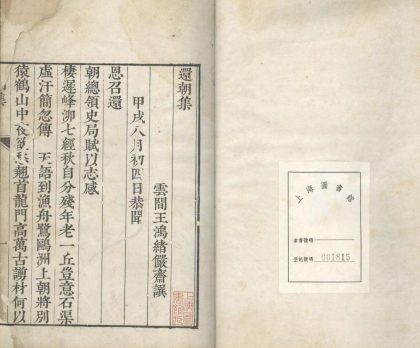 還朝集
雲間王鴻緒儼齋譔
甲戌八月初四日恭聞
恩召還
朝總領史局賦以志感
棲遲峰泖七經秋自分殘年老一丘豈意石渠
虛汗簡忽傳 天語到漁舟鷺鷗洲上朝將別
猿鶴山中夜欲愁翹首龍門高萬古謭材何以
上海圖書館
索書號碼
登記號碼 061815